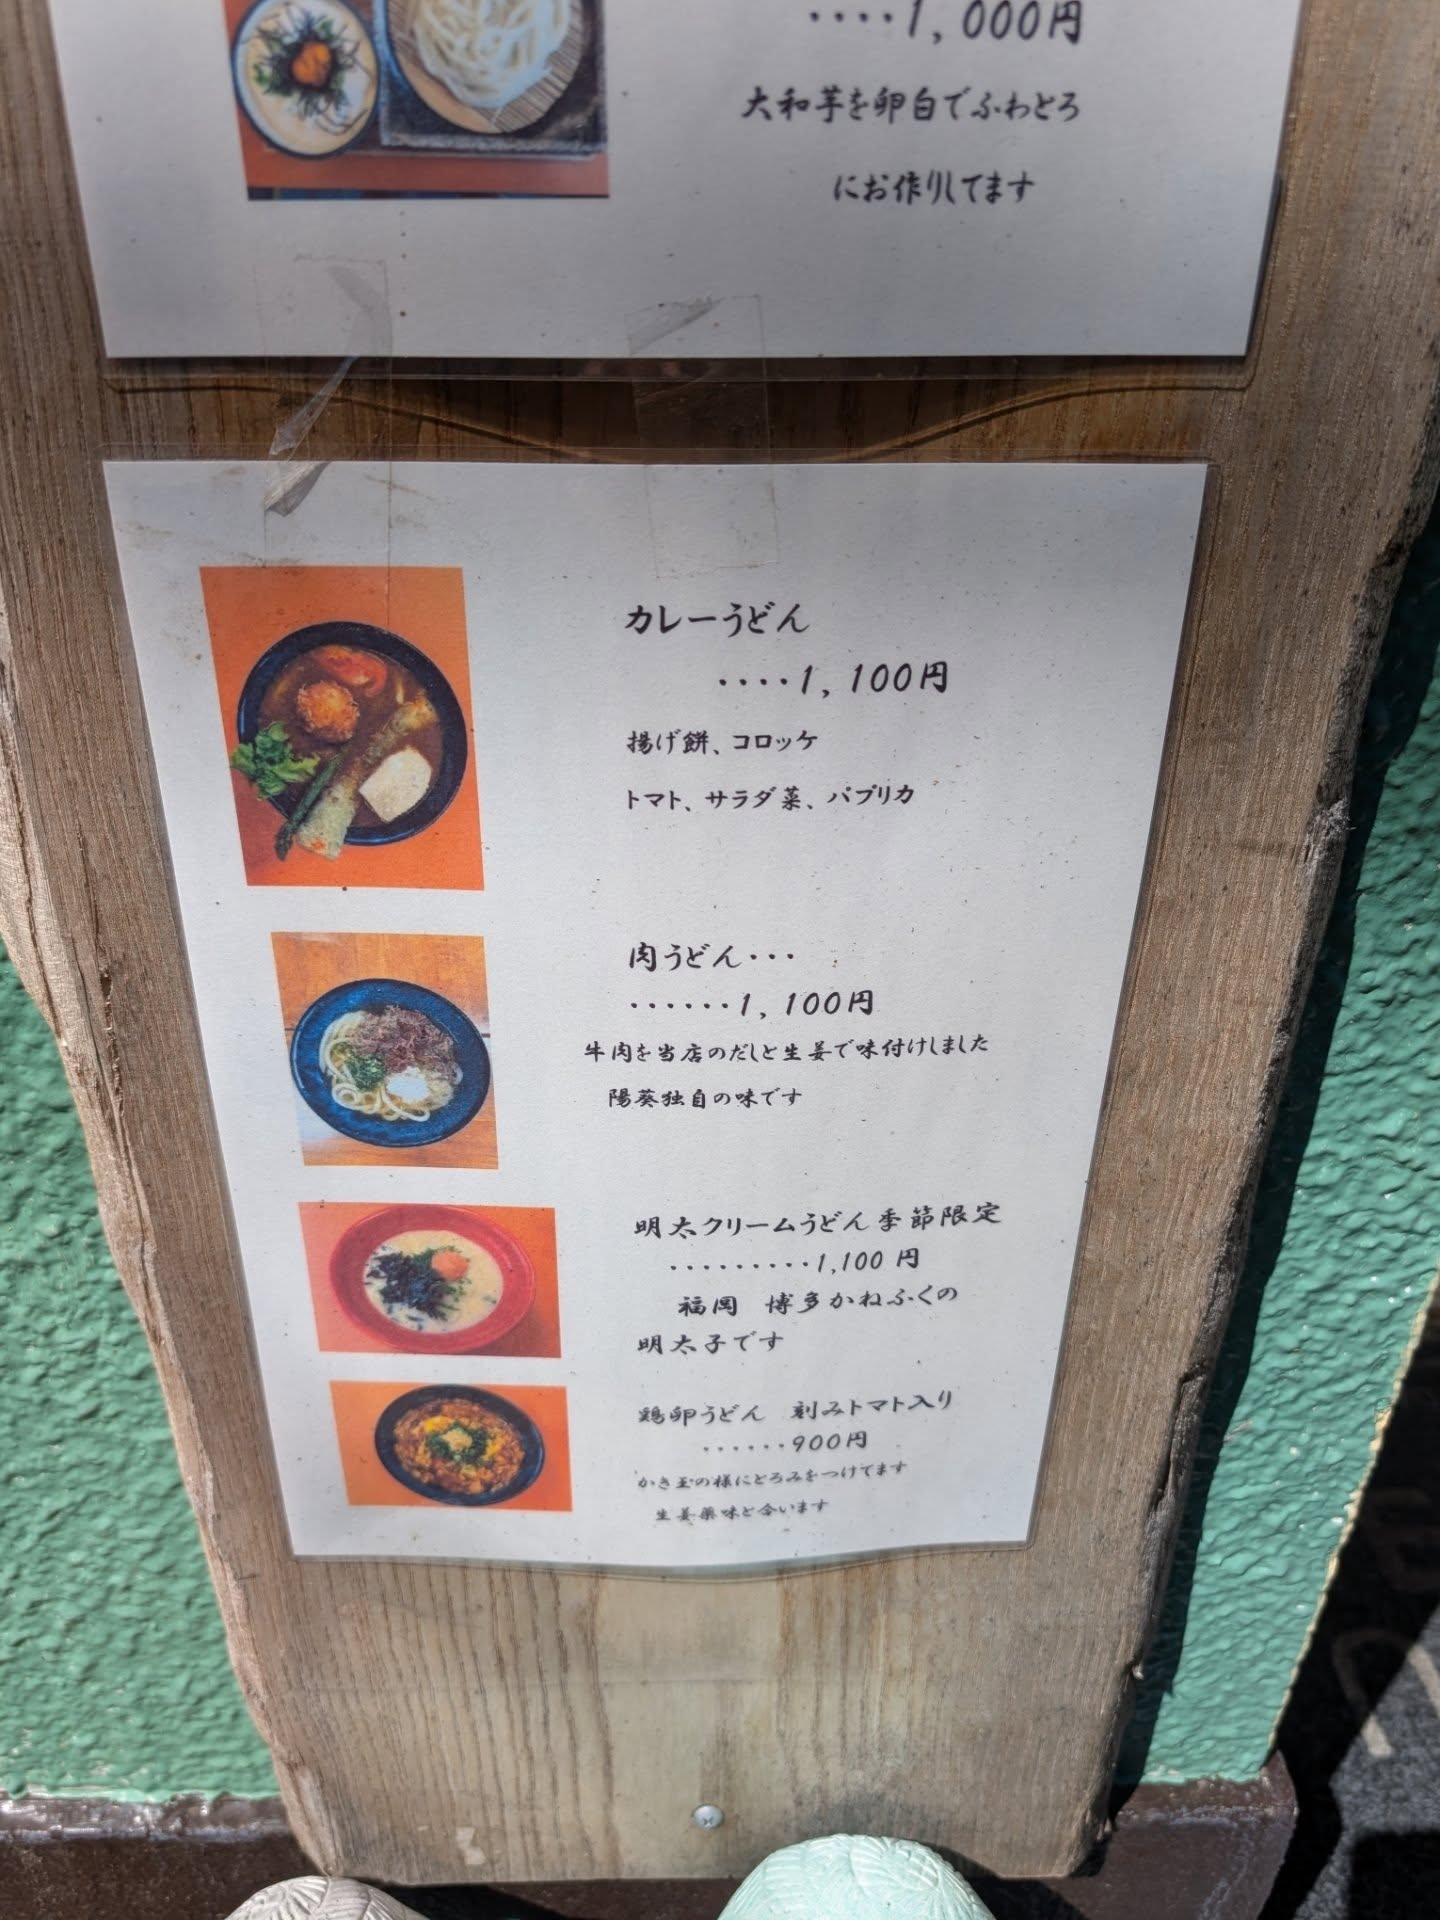 ････1,000円
大和芋を卵白でふわとろ
にお作りしてます
カレーうどん
････1,100円
揚げ餅、コロッケ
トマト、サラダ菜、パプリカ
肉うどん･･･
･･････1,100円
牛肉を当店のだしと生姜で味付けしました
陽葵独自の味です
明太クリームうどん季節限定
･････････1,100円
福岡 博多かねふくの
明太子です
鶏卵うどん 刻みトマト入り
･･････900円
かき玉の様にとろみをつけてます
生姜薬味と合います